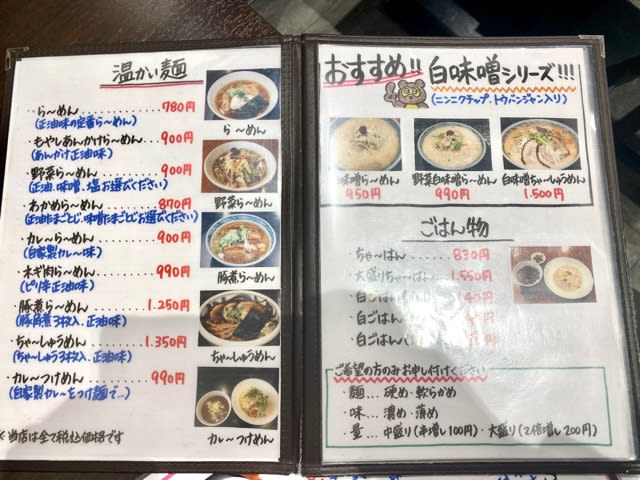 温かい麺
・ら〜めん..........780円
(正油味の定番ら〜めん)
・もやしあんかけら〜めん....900円
(あんかけ正油味)
・野菜ら〜めん.......900円
(正油、味噌、塩お選びください)
・わかめら〜めん......870円
(正油たまごとじ、味噌たまごとじお選びください)
・カレ〜ら〜めん......900円
(自家製カレ〜味)
・ネギ肉ら〜めん......990円
(ピリ辛正油味)
・豚煮ら〜めん......1.250円
(豚角煮3枚入、正油味)
・ちゃ〜しゅうめん.....1.350円
(ちゃ〜しゅう3枚入、正油味)
・カレ〜つけめん......990円
(自家製カレ〜をつけ麺で…)
※当店は全て税込価格です
ら〜めん
野菜ら〜めん
豚煮ら〜めん
ちゃ〜しゅうめん
カレ〜つけめん
おすすめ!! 白味噌シリーズ!!!
(ニンニクチップ、トウバンジャン入り)
味噌ら〜めん 950円
野菜白味噌ら〜めん 990円
白味噌ちゃ〜しゅうめん 1.500円
ごはん物
・ちゃ〜はん......830円
・大盛りちゃ〜はん....1.550円
・白ごはん
・白ごはん
・白ごはん
ご希望の方のみお申し付けください
・麺...硬め・軟らかめ
・味...濃め・薄め
・量...中盛り(半増し100円)・大盛り(2倍増し200円)